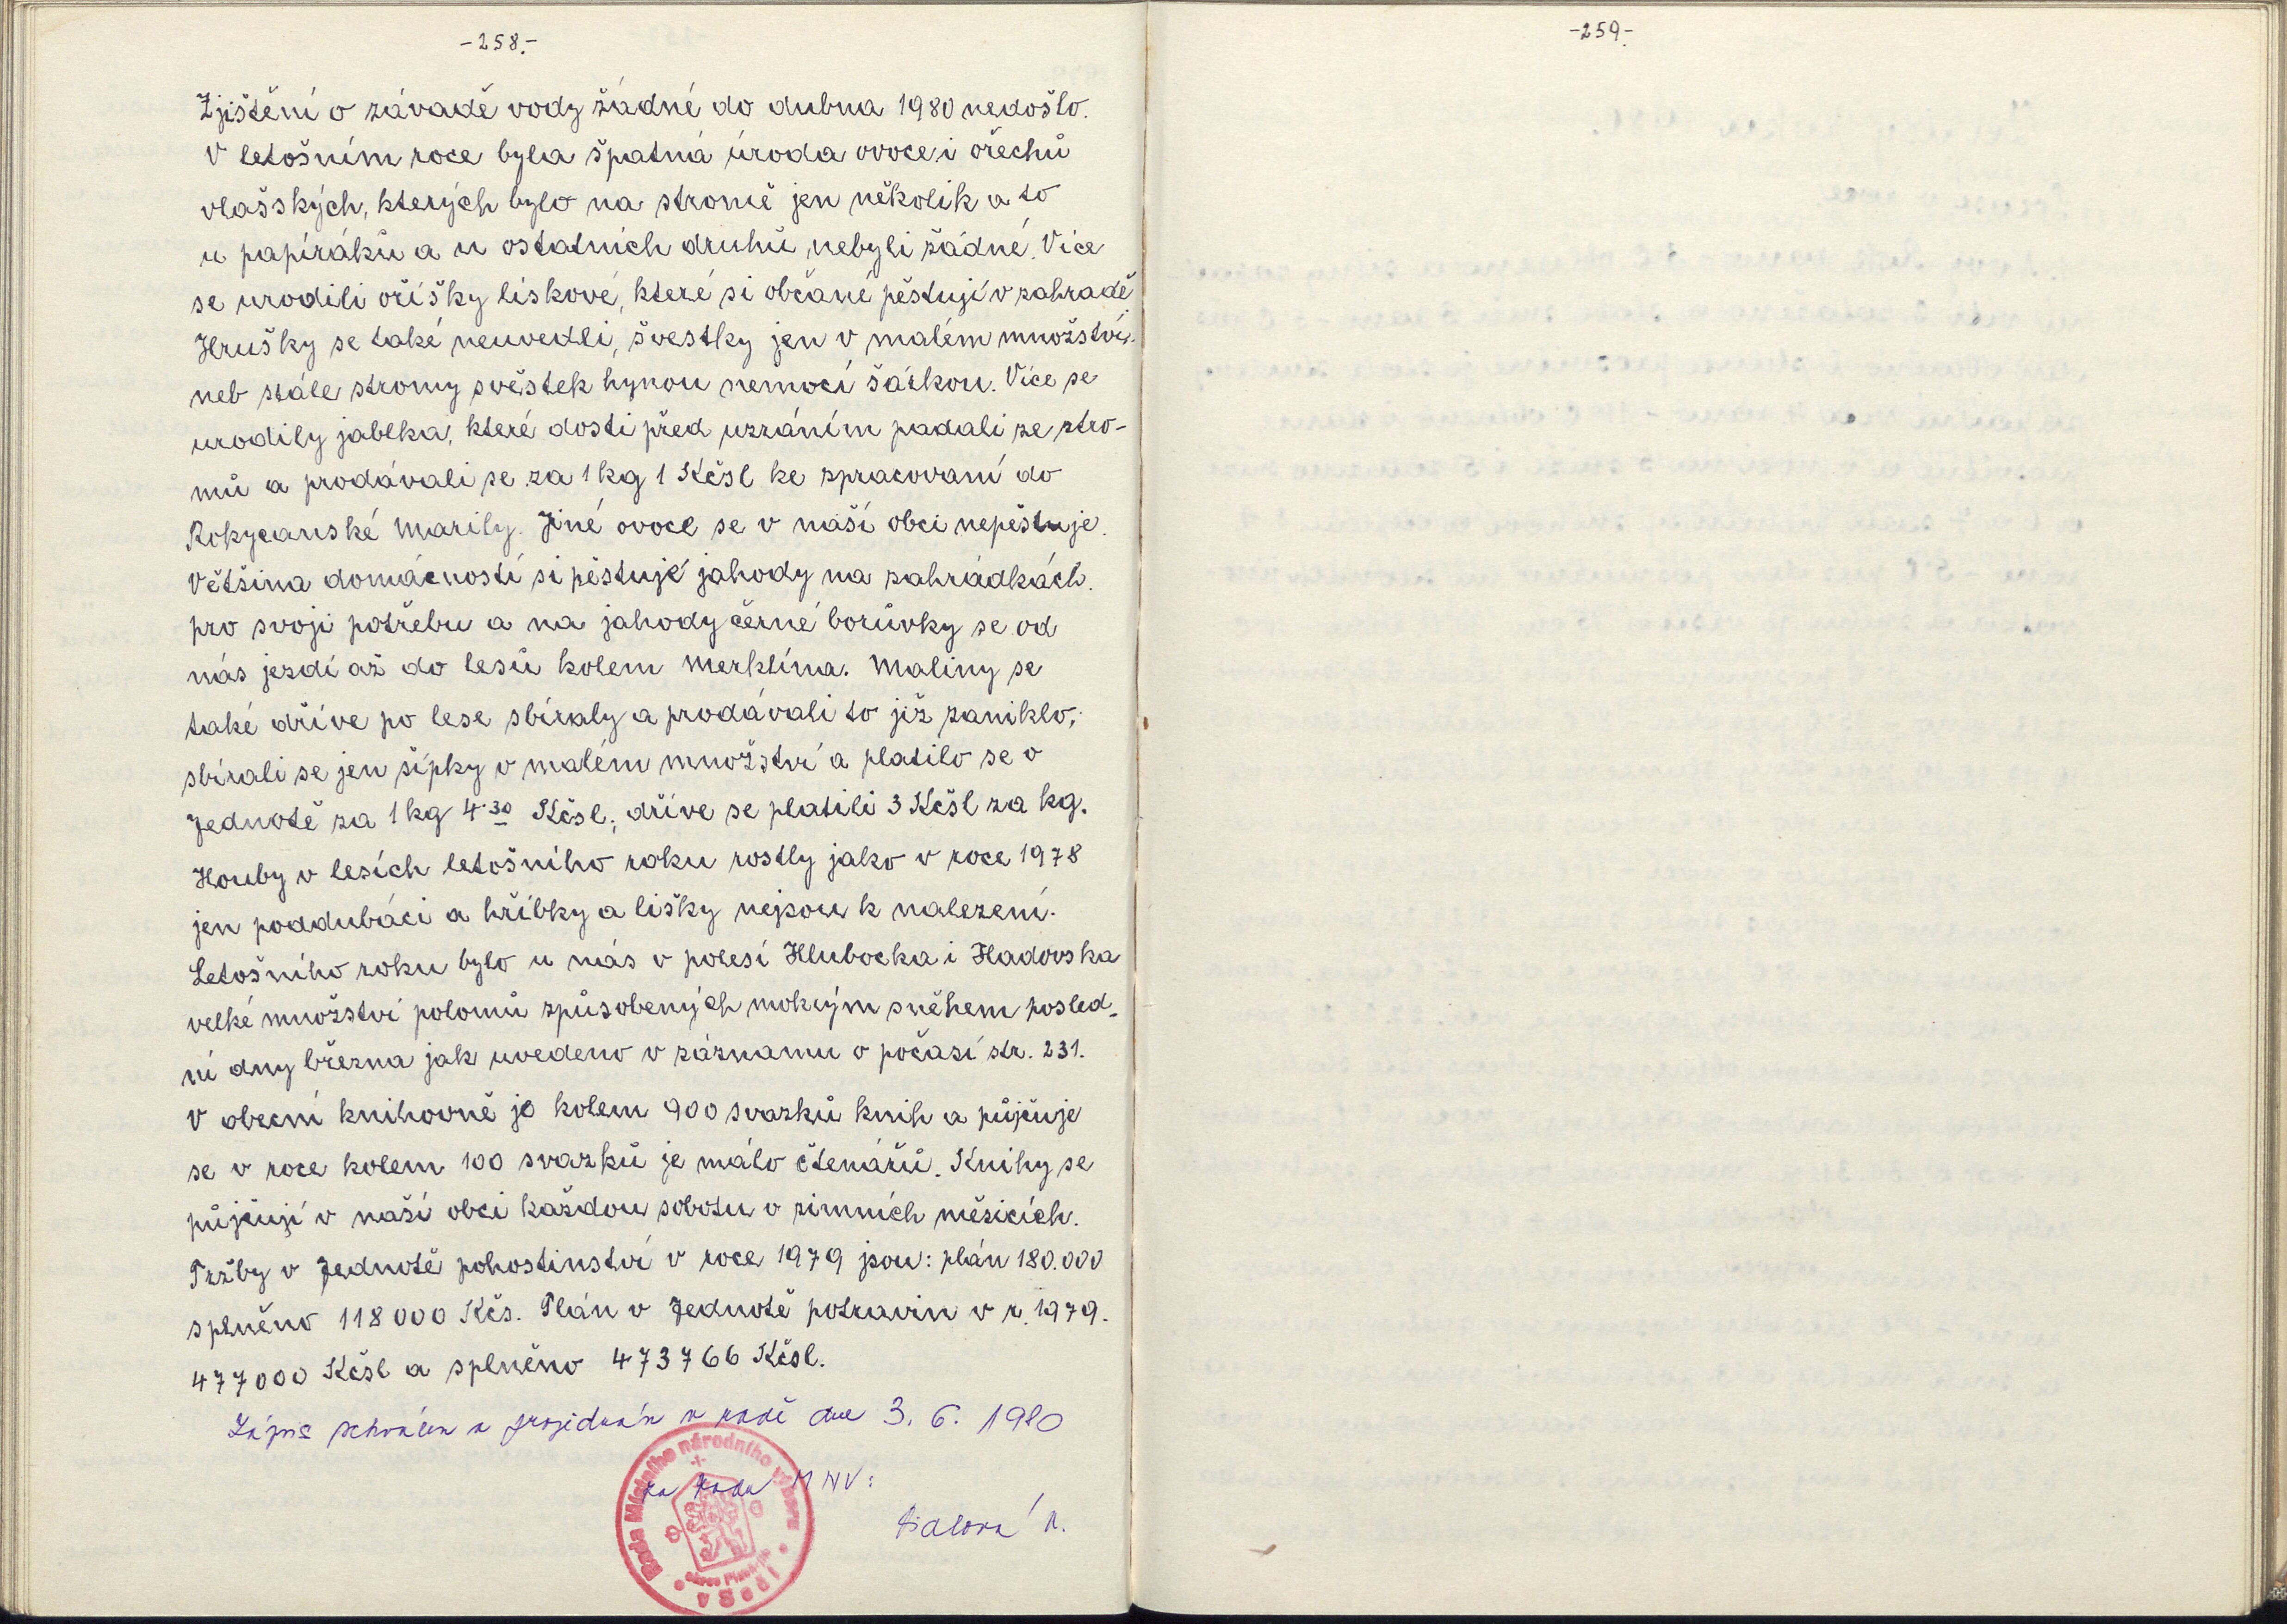 -258.-
Zjištění o závadě vody žádné do dubna 1980 nedošlo.
V letošním roce byla špatná úroda ovoce i ořechů
vlašských, kterých bylo na stromě jen několik a to
u papíráků a u ostatních druhů nebyli žádné. Více
se urodili oříšky lískové, které si občané pěstují v zahradě
Hrušky se také neuvedli, švestky jen v malém množství.
neb stále stromy svěstek hynou nemocí šarkou. Více se
urodily jablka, které dosti před uzráním padali ze stro-
mů a prodávali se za 1 kg 1 Kčsl ke zpracovaní do
Rokycanské Marily. Jiné ovoce se v naší obci nepěstuje.
Většina domácností si pěstuje jahody na zahrádkách.
pro svoji potřebu a na jahody černé borůvky se od
nás jezdí až do lesů kolem Merklína. Maliny se
také dříve po lese sbíraly a prodávali to již zaniklo,
sbírali se jen šípky v malém množství a platilo se v
Jednotě za 1 kg 4.30 Kčsl., dříve se platili 3 Kčsl za kg.
Houby v lesích letošního roku rostly jako v roce 1978
jen poddubáci a hříbky a lišky nejsou k nalezení.
Letošního roku bylo u nás v polesí Hlubocka i Hadovska
velké množství polomů způsobených mokrým sněhem posled-
ní dny března jak uvedeno v záznamu o počasí str. 231.
V obecní knihovně je kolem 900 svazků knih a půjčuje
se v roce kolem 100 svazků je málo čtenářů. Knihy se
půjčují v naší obci každou sobotu v zimních měsicích.
Tržby v Jednotě pohostinství v roce 1979 jsou: plán 180.000
splněno 118 000 Kčs. Plán v Jednotě potravin v r. 1979.
477000 Kčsl a splněno 473766 Kčsl.
Zápis schválen a projednán v radě dne 3. 6. 1980
za radu MNV:
Rada Místního národního výboru
-259.-